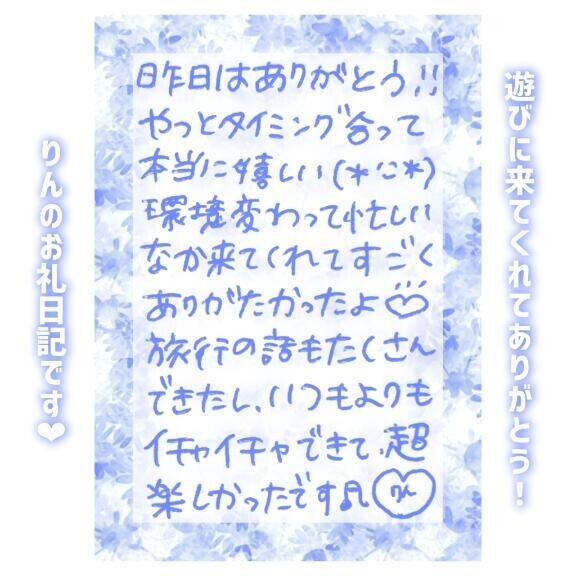 遊びに来てくれてありがとう！
昨日はありがとう!!
やっとタイミング合って
本当に嬉しい(*'ω'*)
環境変わって忙しい
なか来てくれてすごく
ありがたかったよ♡
旅行の話もたくさん
できたし、いつもよりも
イチャイチャできて、超
楽しかったです♬
りん
りんのお礼日記です❤